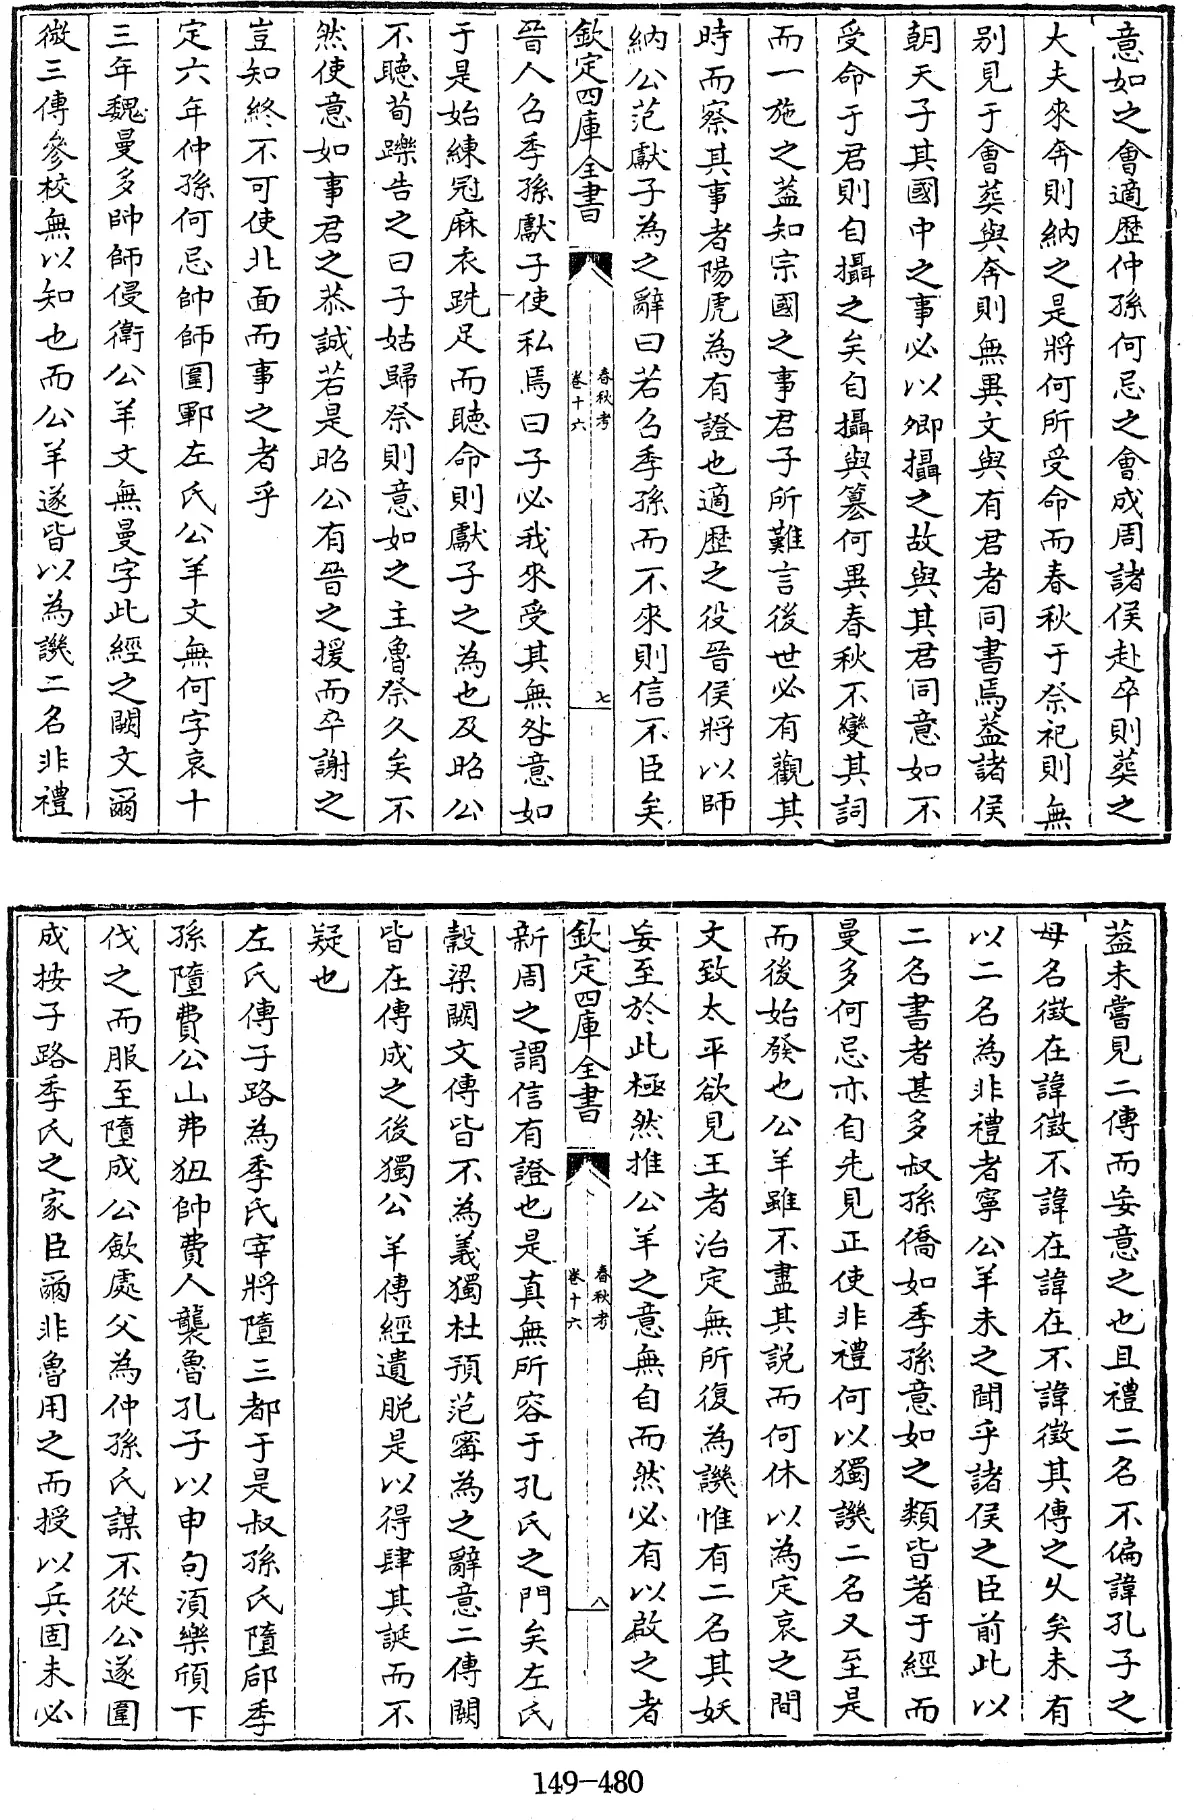 意如之會適歴仲孫何忌之會成周諸侯赴卒則葬之
大夫來奔則納之是將何所受命而春秋于祭祀則無
别見于會葬與奔則無異文與有君者同書焉葢諸侯
朝天子其國中之事必以卿攝之故與其君同意如不
受命于君則自攝之矣自攝與簒何異春秋不變其詞
而一施之葢知宗國之事君子所難言後世必有觀其
時而察其事者陽虎為有證也適歴之役晉侯將以師
納公范獻子為之辭曰若召季孫而不來則信不臣矣
欽定四庫全書
春秋考
卷十六
七
晉人召季孫獻子使私焉曰子必我來受其無咎意如
于是始練冠麻衣跣足而聽命則獻子之為也及昭公
不聽荀躒告之曰子姑歸祭則意如之主魯祭久矣不
然使意如事君之恭誠若是昭公有晉之援而卒謝之
豈知終不可使北面而事之者乎
定六年仲孫何忌帥師圍鄆左氏公羊文無何字哀十
三年魏曼多帥師侵衛公羊文無曼字此經之闕文爾
微三傳參校無以知也而公羊遂皆以為譏二名非禮
葢未嘗見二傳而妄意之也且禮二名不偏諱孔子之
母名徴在諱徴不諱在諱在不諱徴其傳之乆矣未有
以二名為非禮者寧公羊未之聞乎諸侯之臣前此以
二名書者甚多叔孫僑如季孫意如之類皆著于經而
曼多何忌亦自先見正使非禮何以獨譏二名又至是
而後始發也公羊雖不盡其説而何休以為定哀之間
文致太平欲見王者治定無所復為譏惟有二名其妖
妄至於此極然推公羊之意無自而然必有以啟之者
欽定四庫全書
春秋考
卷十六
八
新周之謂信有證也是真無所容于孔氏之門矣左氏
穀梁闕文傳皆不為義獨杜預范寗為之辭意二傳闕
皆在傳成之後獨公羊傳經遺脱是以得肆其誕而不
疑也
左氏傳子路為季氏宰將墮三都于是叔孫氏墮郈季
孫墮費公山弗狃帥費人襲魯孔子以申句湏樂頎下
伐之而服至墮成公歛處父為仲孫氏謀不從公遂圍
成按子路季氏之家臣爾非魯用之而授以兵固未必
149-480